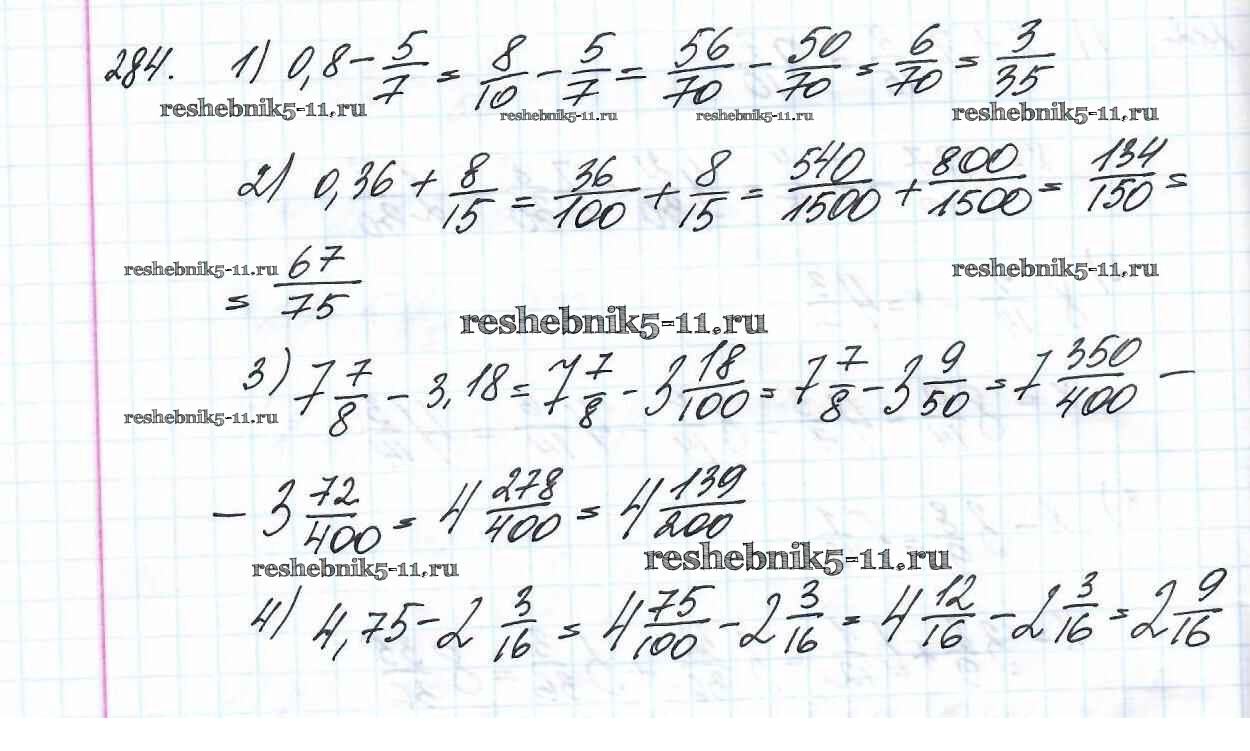 284. 1) 0,8 - 5/7 = 8/10 - 5/7 = 56/70 - 50/70 = 6/70 = 3/35
reshebnik5-11.ru reshebnik5-11.ru reshebnik5-11.ru reshebnik5-11.ru
2) 0,36 + 8/15 = 36/100 + 8/15 = 540/1500 + 800/1500 = 134/150 =
reshebnik5-11.ru = 67/75 reshebnik5-11.ru
reshebnik5-11.ru
3) 7 7/8 - 3,18 = 7 7/8 - 3 18/100 = 7 7/8 - 3 9/50 = 7 350/400 -
reshebnik5-11.ru
- 3 72/400 = 4 278/400 = 4 139/200
reshebnik5-11.ru reshebnik5-11.ru
4) 4,75 - 2 3/16 = 4 75/100 - 2 3/16 = 4 12/16 - 2 3/16 = 2 9/16